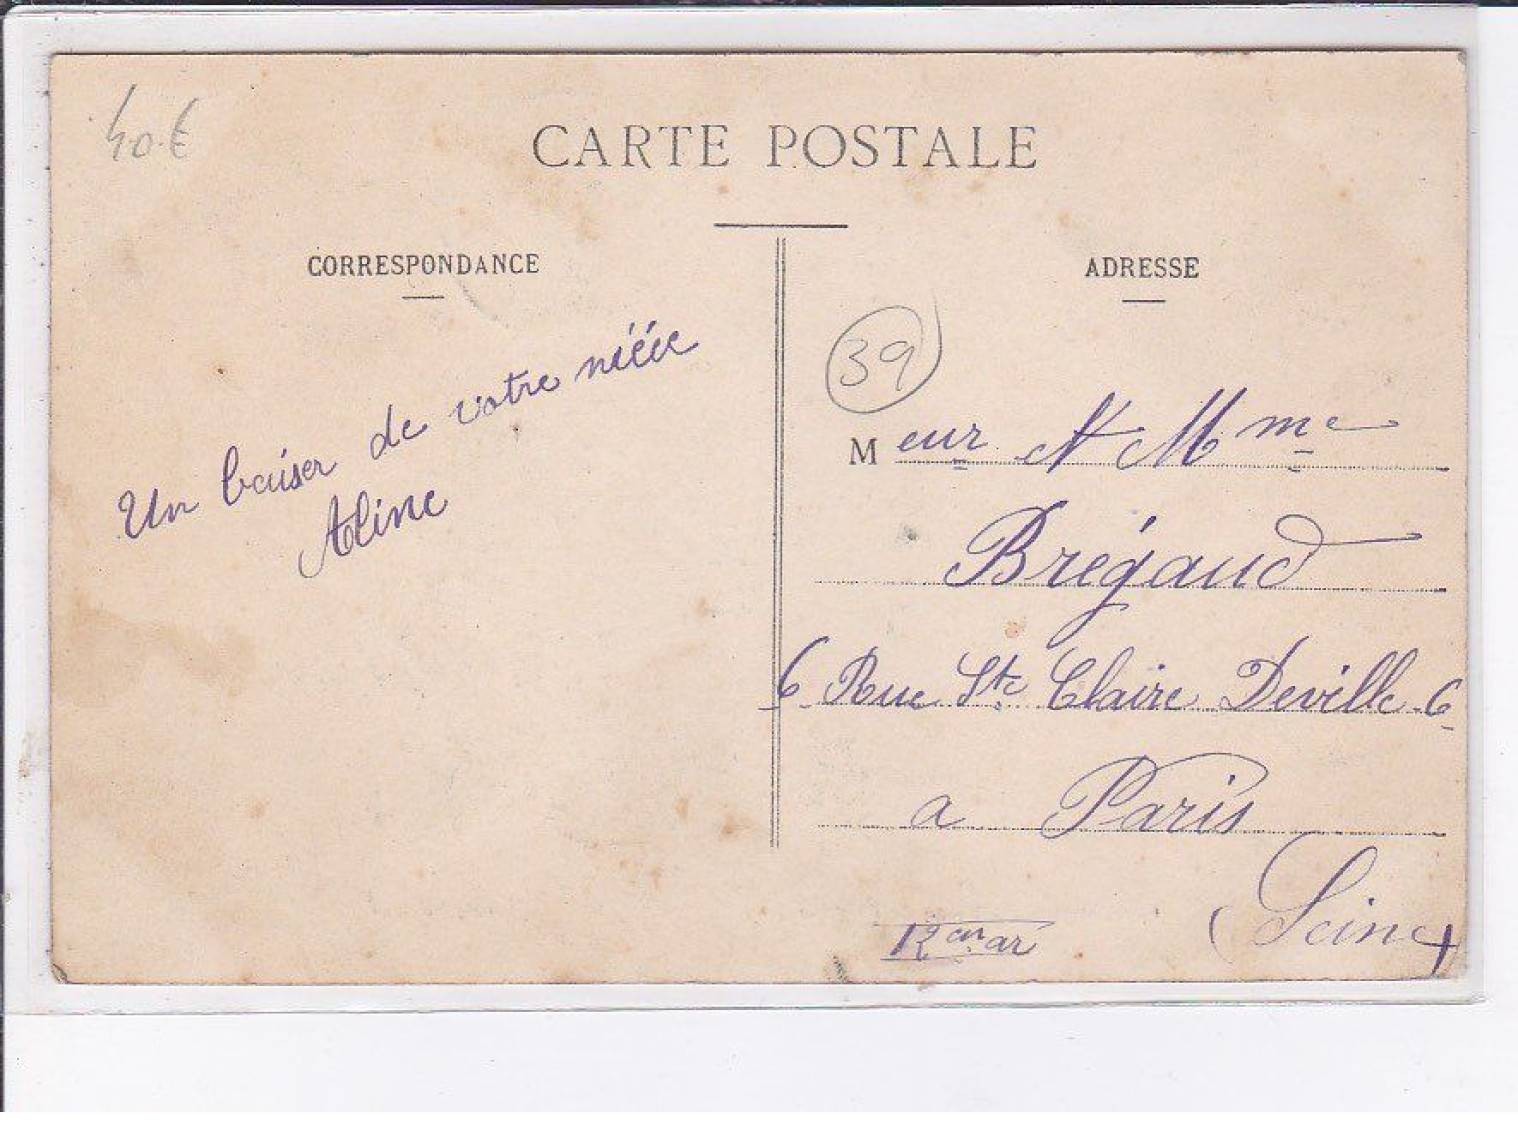 40 €
CARTE POSTALE
CORRESPONDANCE
ADRESSE
39
Un baiser de votre nièce
Aline
Meur & Mme
Brégaud
6 Rue Ste Claire Deville 6
a Paris
(Seine)
12em ar